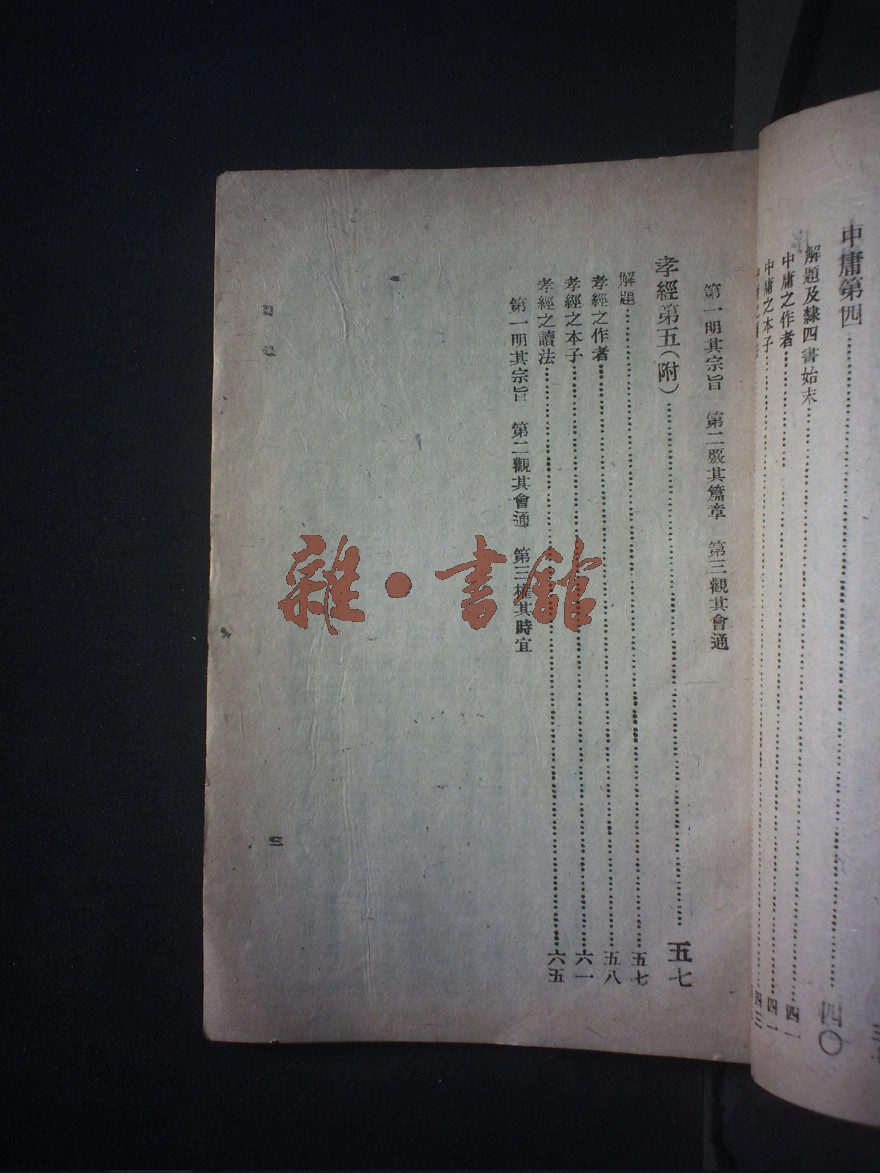 中庸第四……四〇
解題及隸四書始末
中庸之作者……四一
中庸之本子……四一
第一明其宗旨　第二裂其篇章　第三觀其會通
孝經第五（附）……五七
解題……五七
孝經之作者……五八
孝經之本子……六一
孝經之讀法……六五
第一明其宗旨　第二觀其會通　第三權其時宜
三
雜·書館